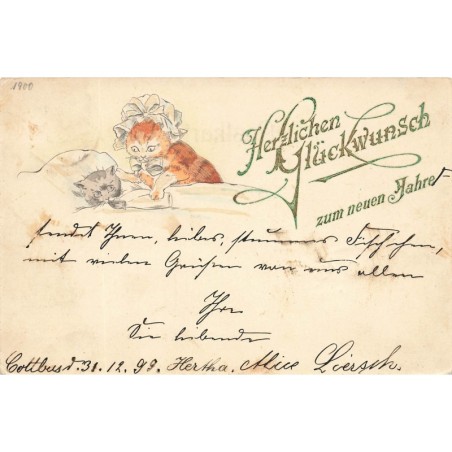 1900
Herzlichen
Glückwunsch
zum neuen Jahre
sendet Ihnen, liebes, stummes Fischchen,
mit vielen Grüßen von uns allen
Ihre
Sie liebende
Cottbus d. 31. 12. 99. Hertha, Alice Liersch.